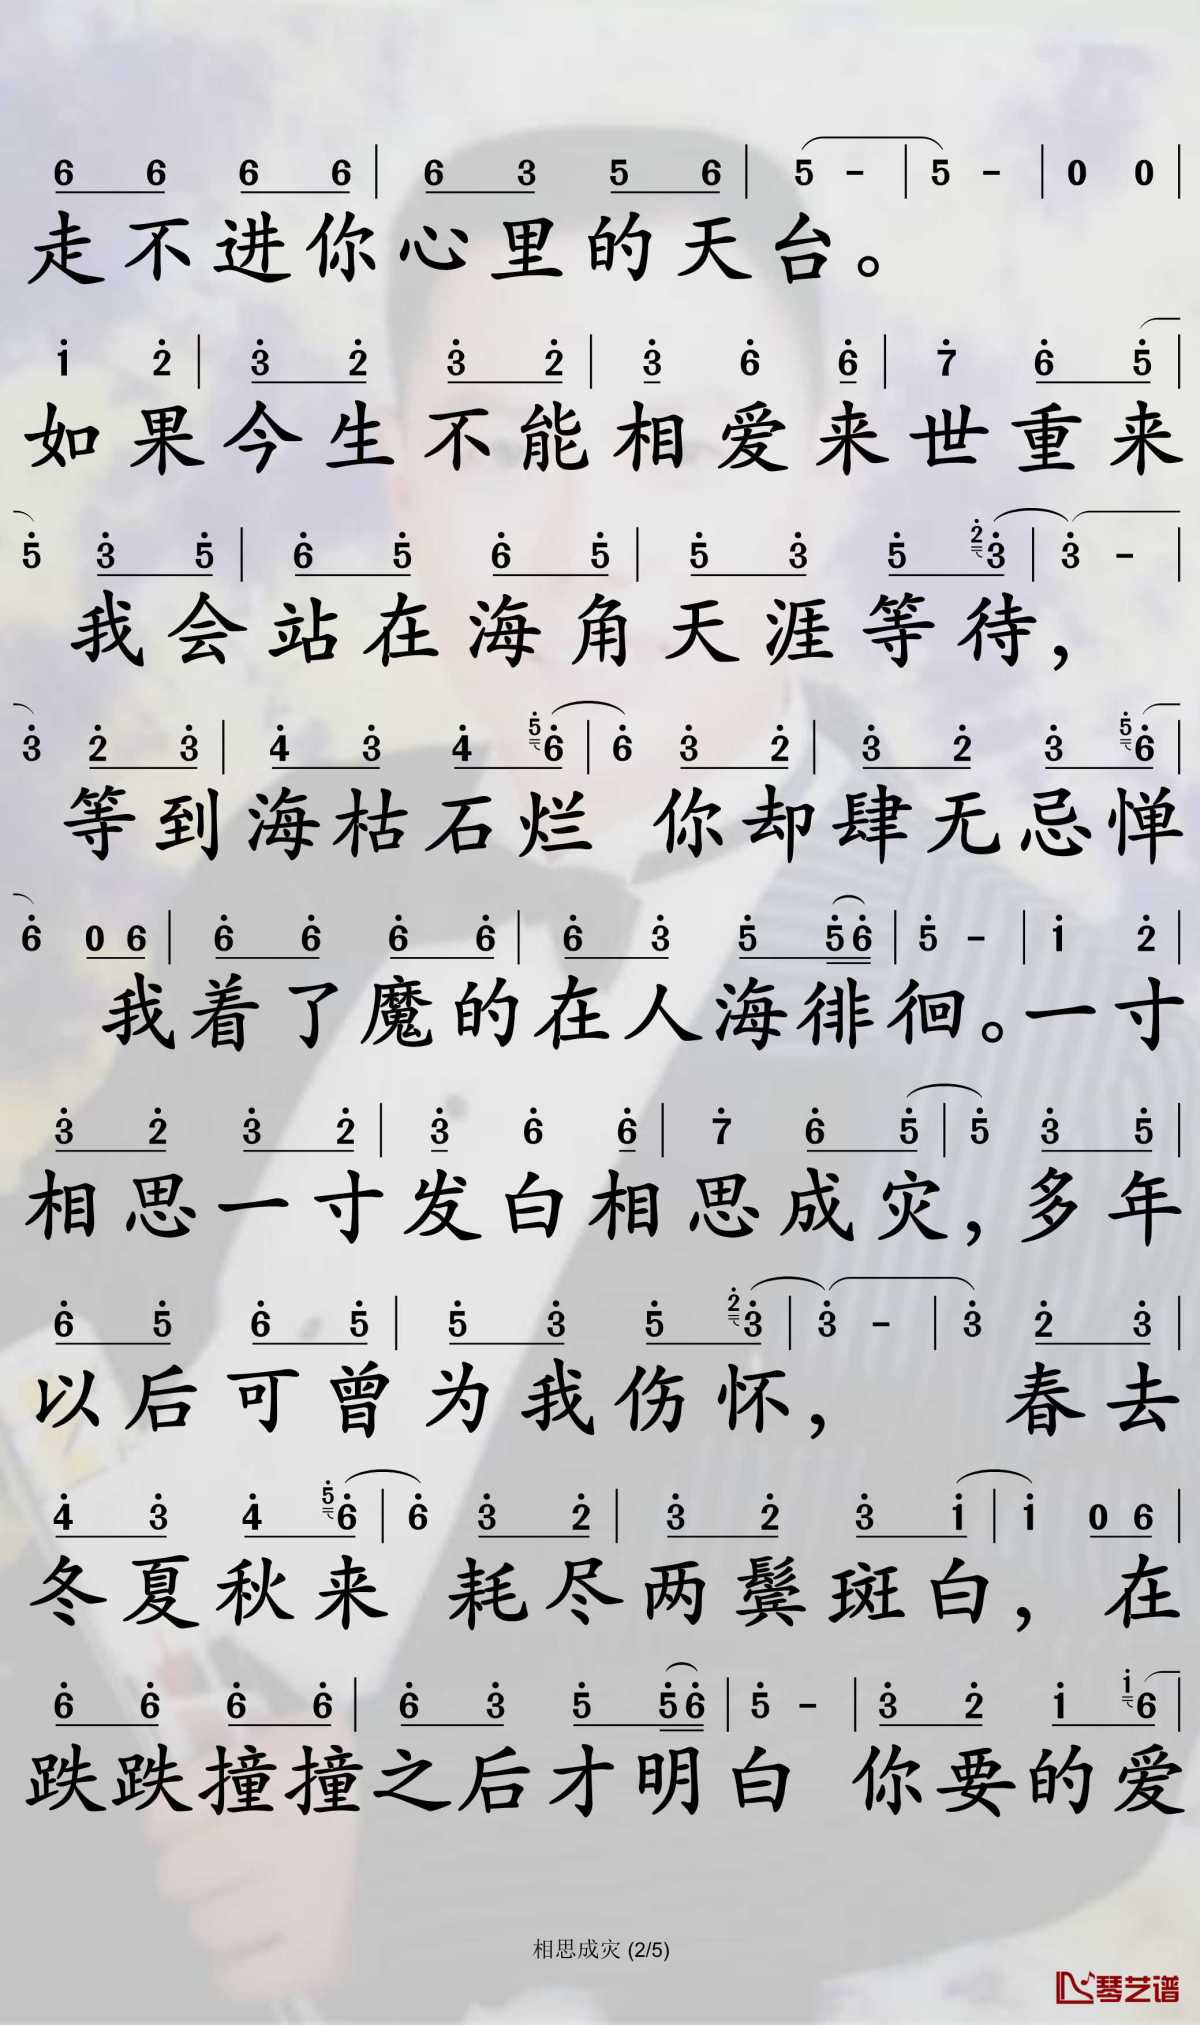 6 6 6 6 | 6 3 5 6 | 5 - | 5 - | 0 0 |
走不进你心里的天台。
1 2 | 3 2 3 2 | 3 6 6 | 7 6 5 |
如果今生不能相爱来世重来
5 3 5 | 6 5 6 5 | 5 3 5 2 3 | 3 - |
我会站在海角天涯等待，
3 2 3 | 4 3 4 5 6 | 6 3 2 | 3 2 3 5 6 |
等到海枯石烂 你却肆无忌惮
6 0 6 | 6 6 6 6 | 6 3 5 5 6 | 5 - | 1 2 |
我着了魔的在人海徘徊。一寸
3 2 3 2 | 3 6 6 | 7 6 5 | 5 3 5 |
相思一寸发白相思成灾，多年
6 5 6 5 | 5 3 5 2 3 | 3 - | 3 2 3 |
以后可曾为我伤怀， 春去
4 3 4 5 6 | 6 3 2 | 3 2 3 1 | 1 0 6 |
冬夏秋来 耗尽两鬓斑白，在
6 6 6 6 | 6 3 5 5 6 | 5 - | 3 2 1 1 6 |
跌跌撞撞之后才明白 你要的爱
相思成灾 (2/5)
琴艺谱